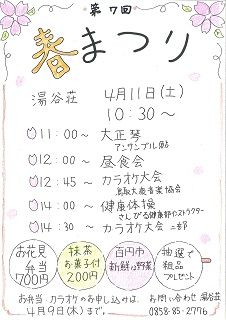 第7回
春まつり
湯谷荘 4月11日(土)
10:30～
11:00～ 大正琴
アンサンブル雅
12:00～ 昼食会
12:45～ カラオケ大会
鳥取大衆音楽協会
14:00～ 健康体操
さんびる健康部インストラクター
14:30～ カラオケ大会 二部
お花見弁当700円
抹茶お菓子付200円
百円市新鮮なお野菜
抽選で粗品プレゼント
お弁当・カラオケのお申し込みは、
4月9日(木)まで。
お問い合わせ 湯谷荘
0858-85-2776